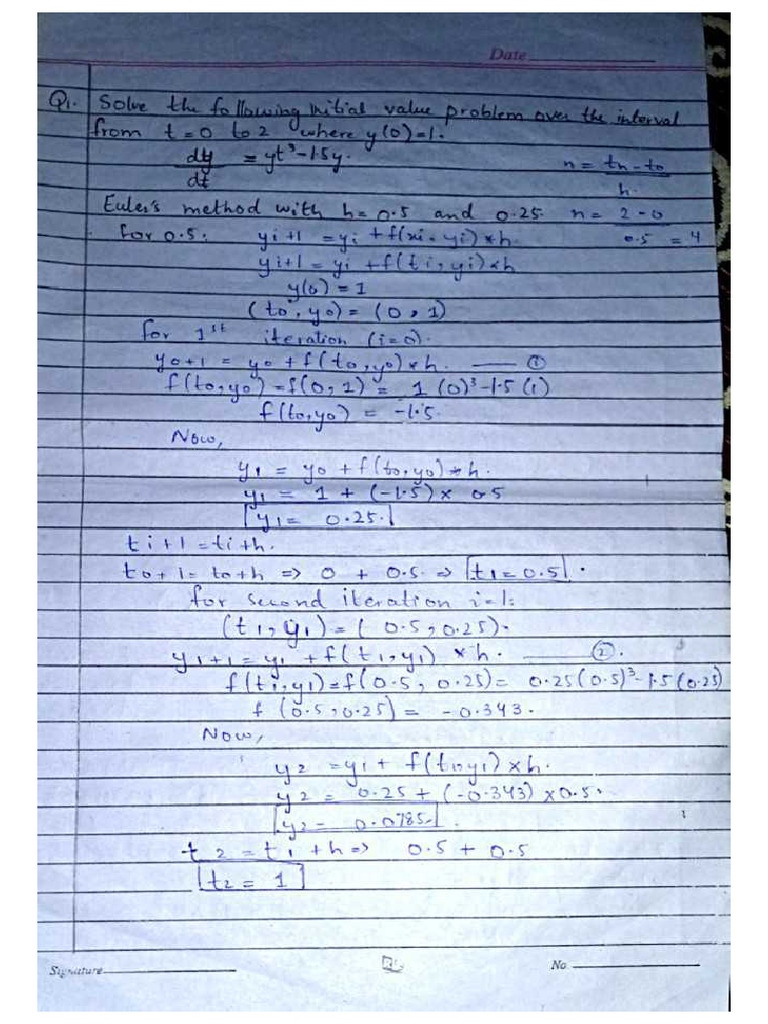 Date
Q1. Solve the following initial value problem over the interval
from t=0 to 2 where y(0)=1.
dy/dt = yt³-1.5y. n = tn-t0/h.
Euler's method with h=0.5 and 0.25. n = 2-0/0.5 = 4
for 0.5: yi+1 = yi + f(xi-yi)*h.
yi+1 = yi + f(ti, yi)*h
y(0) = 1
(t0, y0) = (0, 1)
for 1st iteration (i=0).
y0+1 = y0 + f(t0,y0)*h. ①
f(t0,y0) = f(0,1) = 1(0)³-1.5(1)
f(t0,y0) = -1.5.
Now,
y1 = y0 + f(t0,y0)*h.
y1 = 1 + (-1.5) × 0.5
y1 = 0.25.
ti+1 = ti+h.
t0+1 = t0+h => 0 + 0.5. => t1=0.5.
for second iteration i=1:
(t1, y1) = (0.5, 0.25).
y1+1 = y1 + f(t1,y1) *h. ②.
f(t1,y1) = f(0.5, 0.25) = 0.25(0.5)³-1.5(0.25)
f(0.5,0.25) = -0.343.
Now,
y2 = y1 + f(t1,y1)×h.
y2 = 0.25+(-0.343)×0.5.
y2 = 0.0785.
t2 = t1 + h => 0.5 + 0.5
t2 = 1
Signature No.